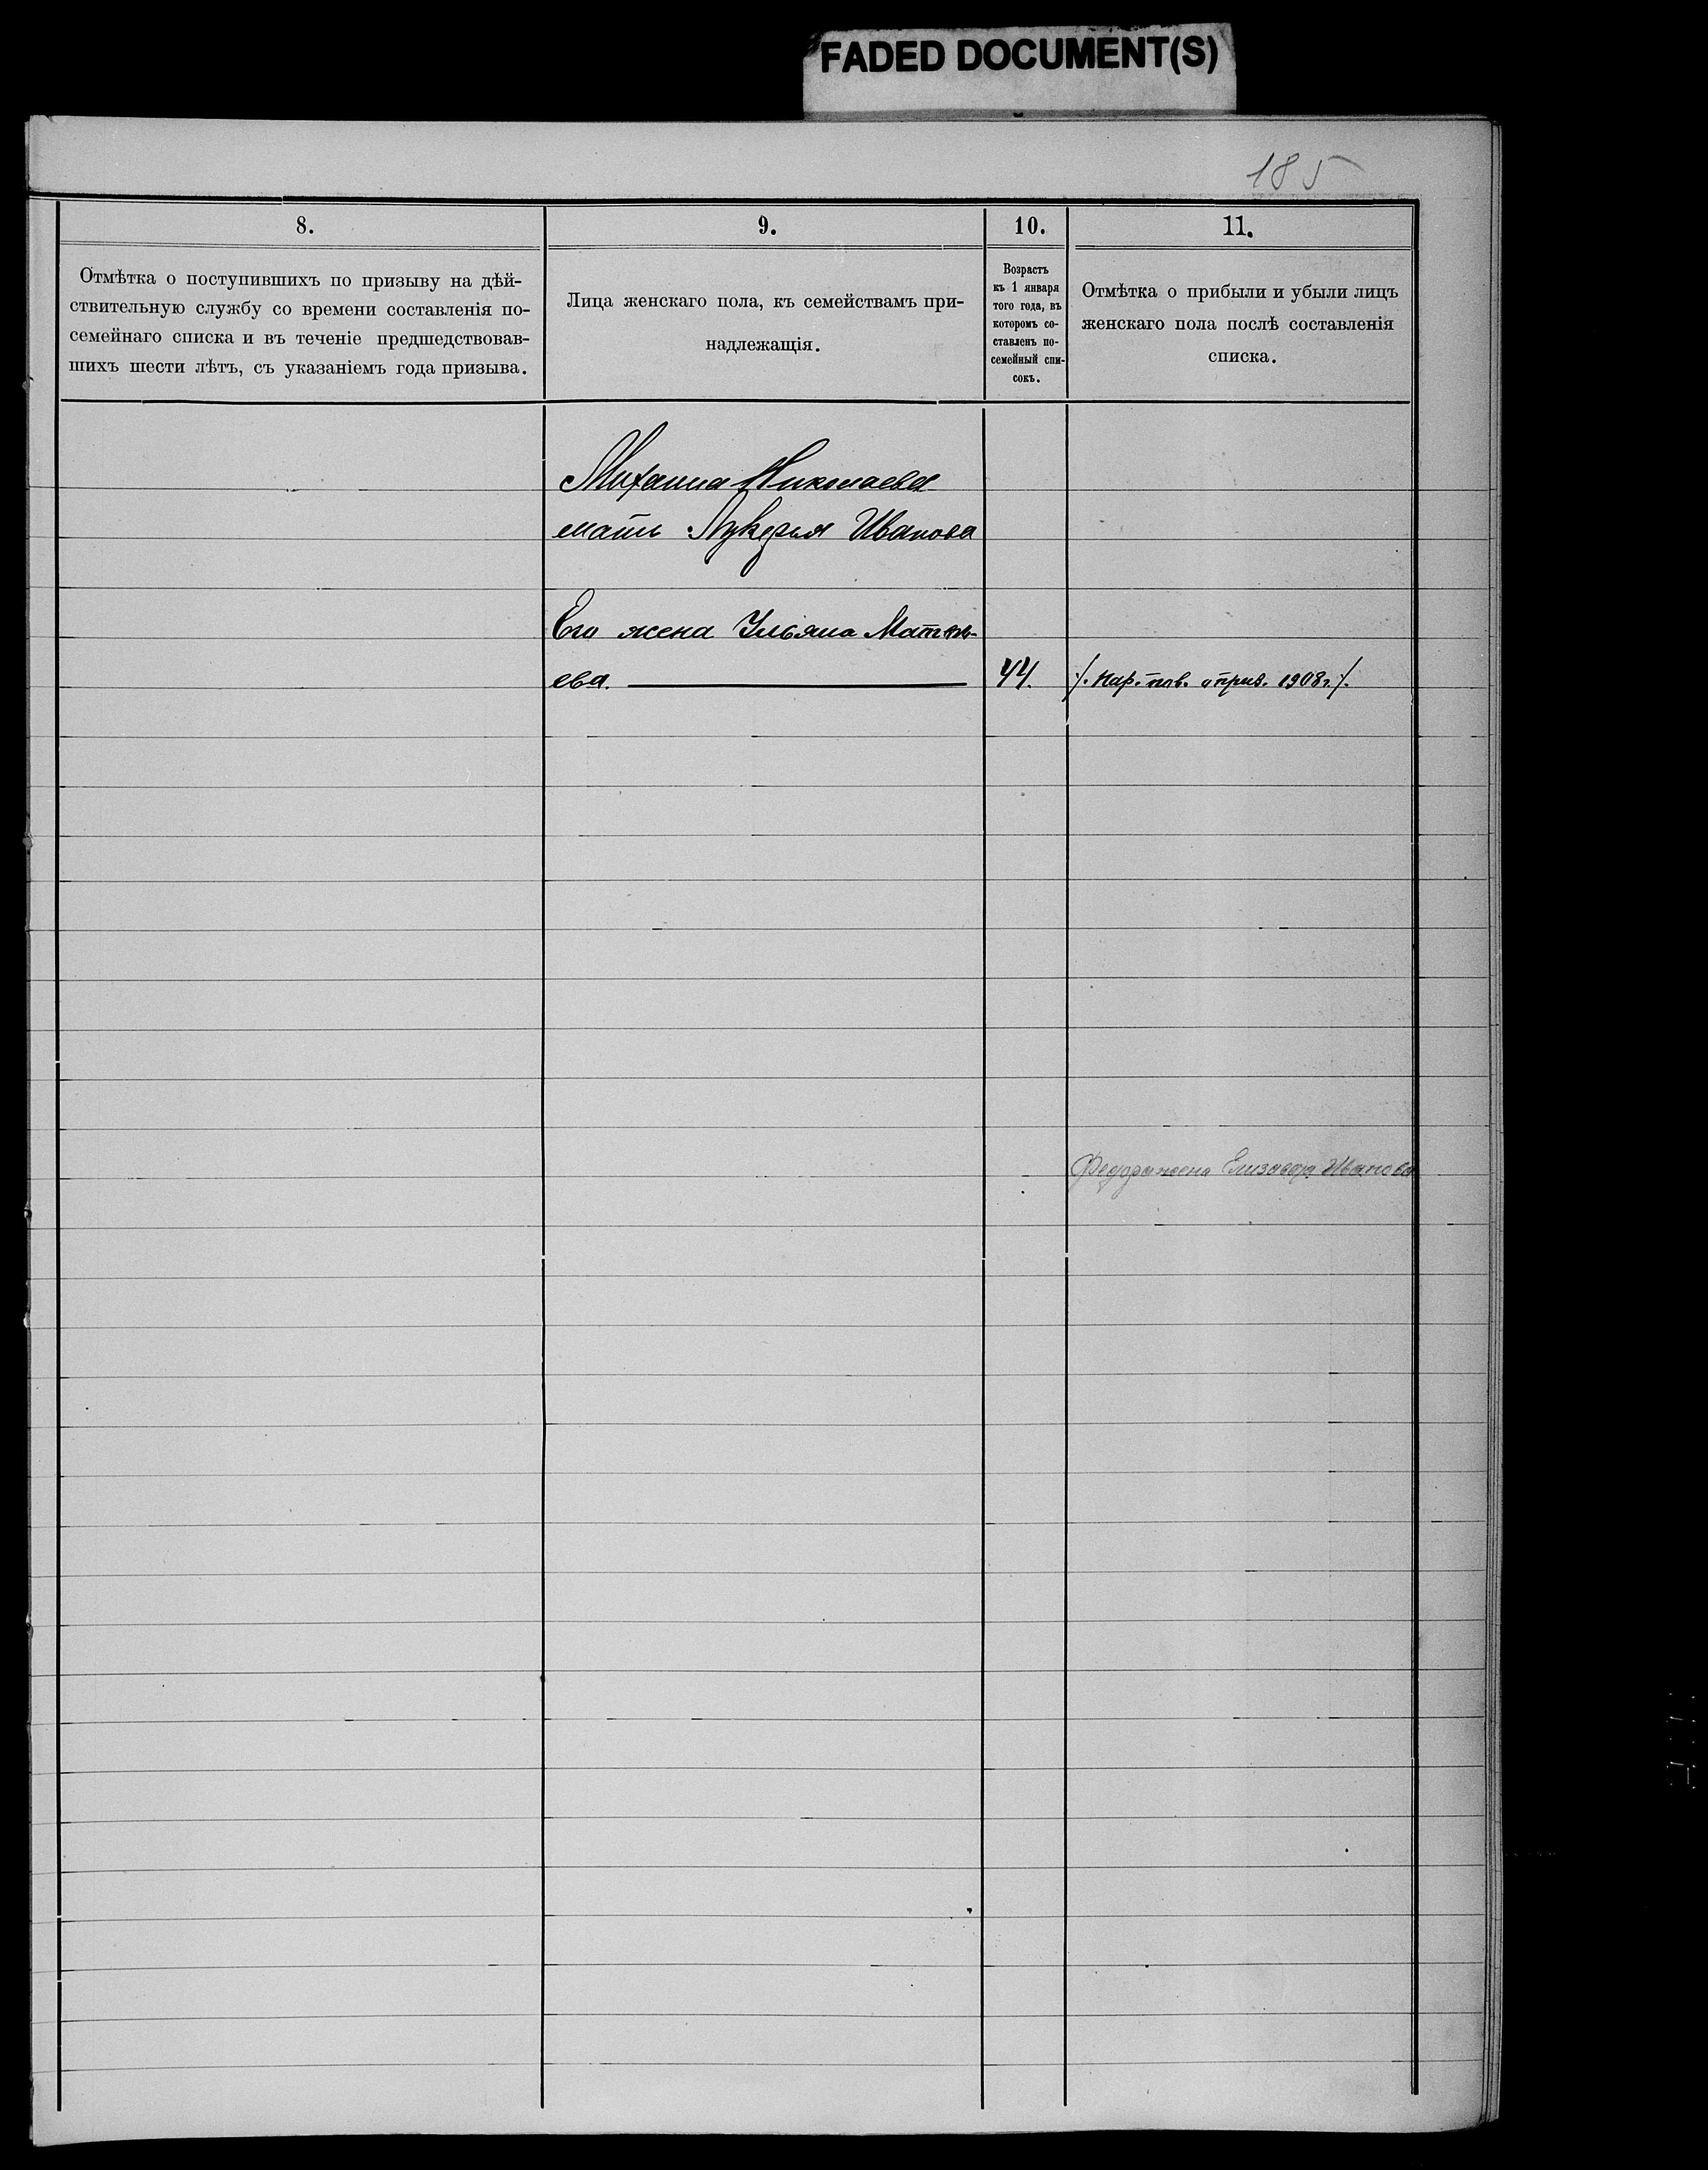 FADED DOCUMENT(S)
185
8.
9.
10.
11.
Отмѣтка о поступившихъ по призыву на дѣй-
ствительную службу со времени составленія по-
семейнаго списка и въ теченіе предшедствовав-
шихъ шести лѣтъ, съ указаніемъ года призыва.
Лица женскаго пола, къ семействамъ при-
надлежащія.
Возрастъ
къ 1 января
того года, въ
которомъ со-
ставленъ по-
семейный спи-
сокъ.
Отмѣтка о прибыли и убыли лицъ
женскаго пола послѣ составленія
списка.
Михаила Николаева
мать Лукерья Иванова
Его жена Ульяна Матвѣ-
ева.
44.
1908 г.
Федора жена Елизавета Иванова